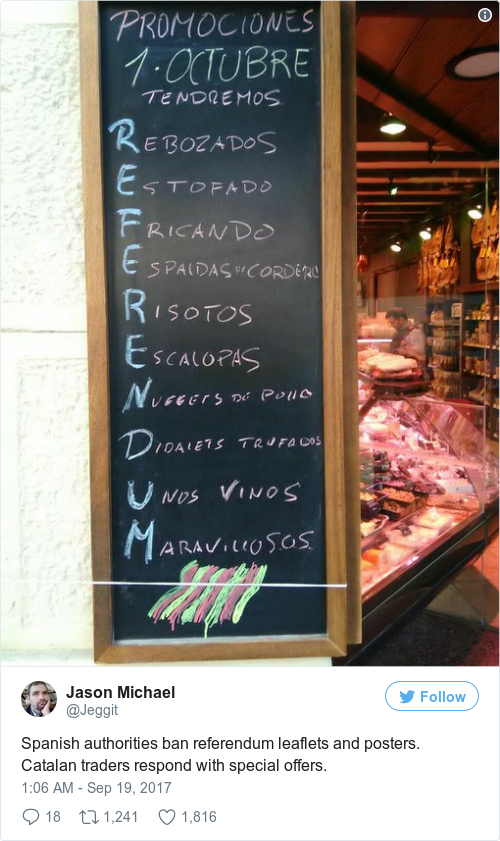 PROMOCIONES
1·OCTUBRE
TENDREMOS
REBOZADOS
ESTOFADO
FRICANDO
ESPALDAS DE CORDERO
RISOTOS
ESCALOPAS
NUGGETS DE POLLO
DIDALETS TRUFADOS
UNOS VINOS
MARAVILLOSOS.
Jason Michael
@Jeggit
Follow
Spanish authorities ban referendum leaflets and posters.
Catalan traders respond with special offers.
1:06 AM - Sep 19, 2017
18 1,241 1,816